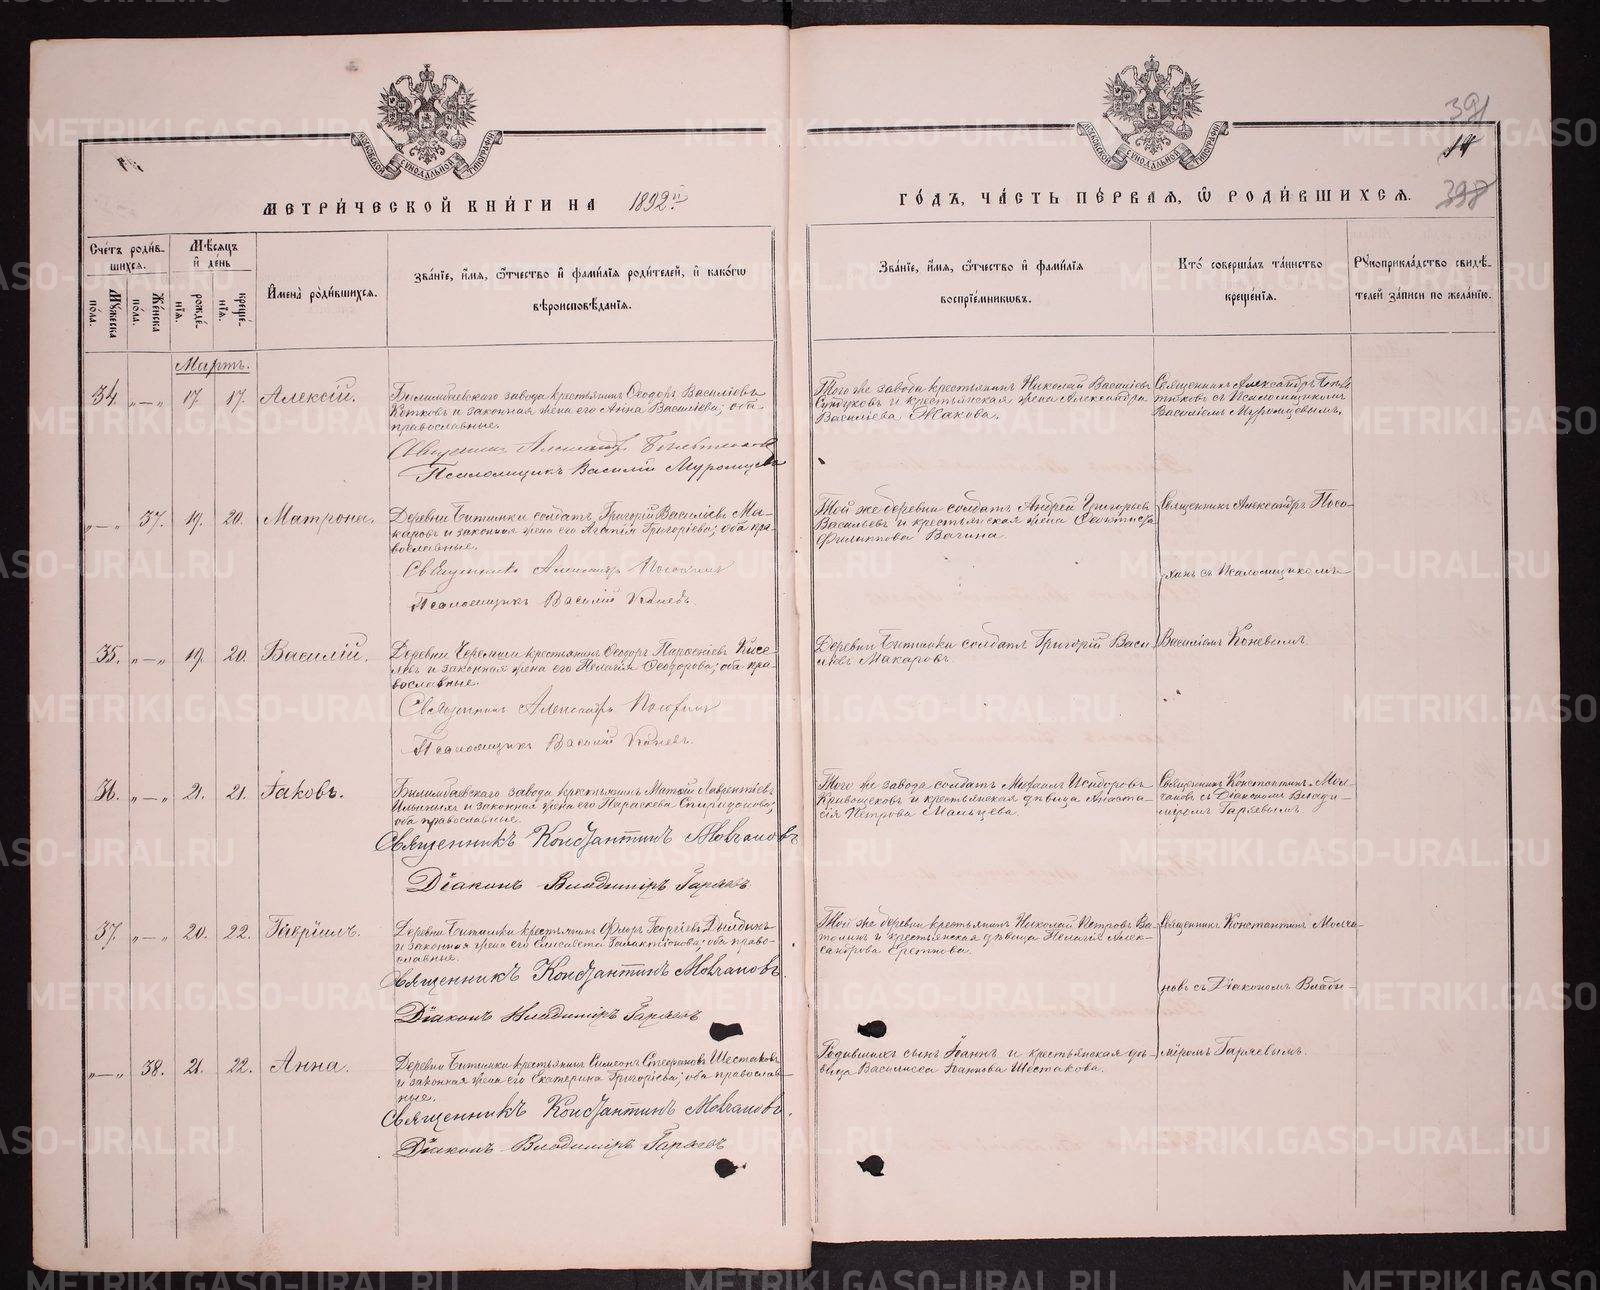 МЕТРИ́ЧЕСКОЙ КНИ́ГИ НА 1892й
ГО́ДЪ, ЧА́СТЬ ПЕ́РВАЯ, Ѿ РОДИ́ВШИХСЯ.
391
14
398
Сче́тъ роди́в-
шихся.
Му́жеска по́ла.
Же́нска по́ла.
Мѣ́сяцъ и де́нь
рожде́нїя.
креще́нїя.
И҆мена̀ роди́вшихся.
Зва́нїе, и҆́мя, ѻ҆́тчество и҆ фами́лїя роди́телей, и҆ како́гѡ
вѣроисповѣ́данїя.
Зва́нїе, и҆́мя, ѻ҆́тчество и҆ фами́лїя
воспрїе́мниковъ.
Кто̀ соверша́лъ та́инство
креще́нїя.
Рꙋкоприкла́дство свидѣ́-
телей за́писи по жела́нїю.
Мартъ.
34. „—„ 17. 17. Алексій.
Билимбаевскаго завода крестьянинъ Ѳеодоръ Васильевъ
Котковъ и законная жена его Анна Васильева; оба
православные.
Священникъ Александръ
Псаломщикъ Василій Муромцевъ
Того же завода крестьянинъ Николай Васильевъ
Сундуковъ и крестьянская жена Александра
Васильева Жакова.
Священникъ Александръ
съ Псаломщикомъ
Василіемъ Муромцевымъ.
„—„ 37. 19. 20. Матрона.
Деревни Битимки солдатъ Григорій Васильевъ Ма-
каровъ и законная жена его Агапія Григорьева; оба пра-
вославные.
Священникъ Александръ
Псаломщикъ Василій Коневъ.
Той же деревни солдатъ Андрей Григорьевъ
Васильевъ и крестьянская жена Ѳеоктиста
Филиппова Вагина.
Священникъ Александръ
съ Псаломщикомъ
35. „—„ 19. 20. Василій.
Деревни Черемши крестьянинъ Ѳеодоръ Парѳеніевъ Кисе-
левъ и законная жена его Пелагія Ѳеодорова; оба пра-
вославные.
Священникъ Александръ
Псаломщикъ Василій Коневъ.
Деревни Битимки солдатъ Григорій Васи-
льевъ Макаровъ.
Василіемъ Коневымъ.
36. „—„ 21. 21. Іаковъ.
Билимбаевскаго завода крестьянинъ Матѳій Лаврентіевъ
Ильиныхъ и законная жена его Параскева Спиридонова;
оба православные.
Священникъ Константинъ Молчановъ
Діаконъ Владиміръ Гаряевъ
Того же завода солдатъ Михаилъ Исидоровъ
Кривощековъ и крестьянская дѣвица Анаста-
сія Петрова Мальцева.
Священникъ Константинъ Мол-
чановъ съ Діакономъ Влади-
міромъ Гаряевымъ.
37. „—„ 20. 22. Гавріилъ.
Деревни Битимки крестьянинъ Флоръ Георгіевъ Дылдинъ
и законная жена его Елисавета Галактіонова; оба право-
славные.
Священникъ Константинъ Молчановъ.
Діаконъ Владиміръ Гаряевъ
Той же деревни крестьянинъ Николай Петровъ Ва-
толинъ и крестьянская дѣвица Пелагія Алек-
сандрова Еретнова.
Священникъ Константинъ Молча-
новъ съ Діакономъ Влади-
„—„ 38. 21. 22. Анна.
Деревни Битимки крестьянинъ Симеонъ Стефановъ Шестаковъ
и законная жена его Екатерина Григорьева; оба православ-
ные.
Священникъ Константинъ Молчановъ.
Діаконъ Владиміръ Гаряевъ
Родившихъ сынъ Іоаннъ и крестьянская дѣ-
вица Василисса Іоаннова Шестакова.
міромъ Гаряевымъ.
METRIKI.GASO-URAL.RU